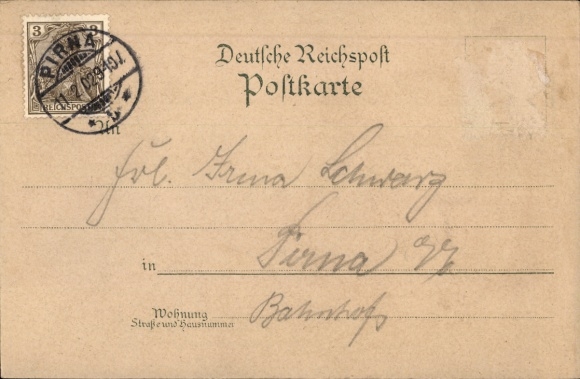 3 3
REICHSPOST
PIRNA
Deutsche Reichspost
Postkarte
An
Frl. Irma Schwarz
in Pirna
Bahnhof
Wohnung
Straße und Hausnummer